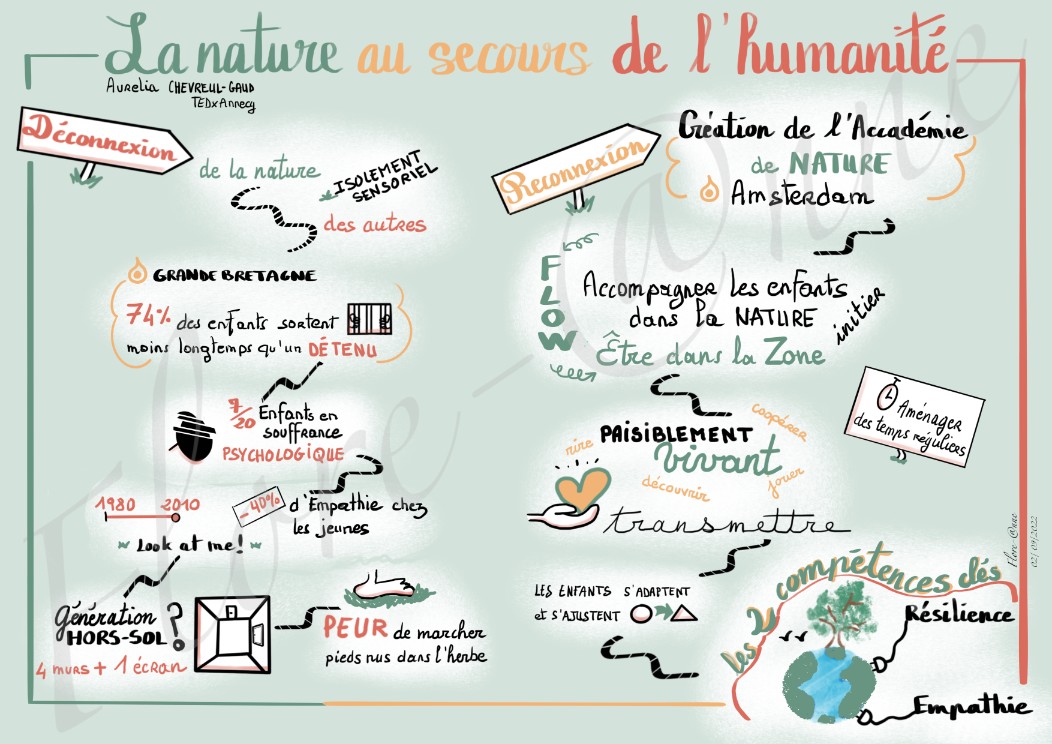 La nature au secours de l'humanité
Aurelia CHEVREUL-GAUD
TEDxAnnecy
Déconnexion
de la nature
ISOLEMENT
SENSORIEL
des autres
GRANDE BRETAGNE
74% des enfants sortent
moins longtemps qu'un DÉTENU
7/20 Enfants en
souffrance
PSYCHOLOGIQUE
1980 2010
-40% d'Empathie chez
les jeunes
Look at me!
Génération
HORS-SOL ?
4 murs + 1 écran
PEUR de marcher
pieds nus dans l'herbe
Reconnexion
Création de l'Académie
de NATURE
Amsterdam
FLOW
Accompagner les enfants
dans la NATURE
initier
Être dans la Zone
Aménager
des temps réguliers
PAISIBLEMENT
vivant
rire
coopérer
découvrir
jouer
transmettre
LES ENFANTS S'ADAPTENT
et S'AJUSTENT
les 2 compétences clés
Résilience
Empathie
Flore-@nne
02/09/2022
Flore-@nne